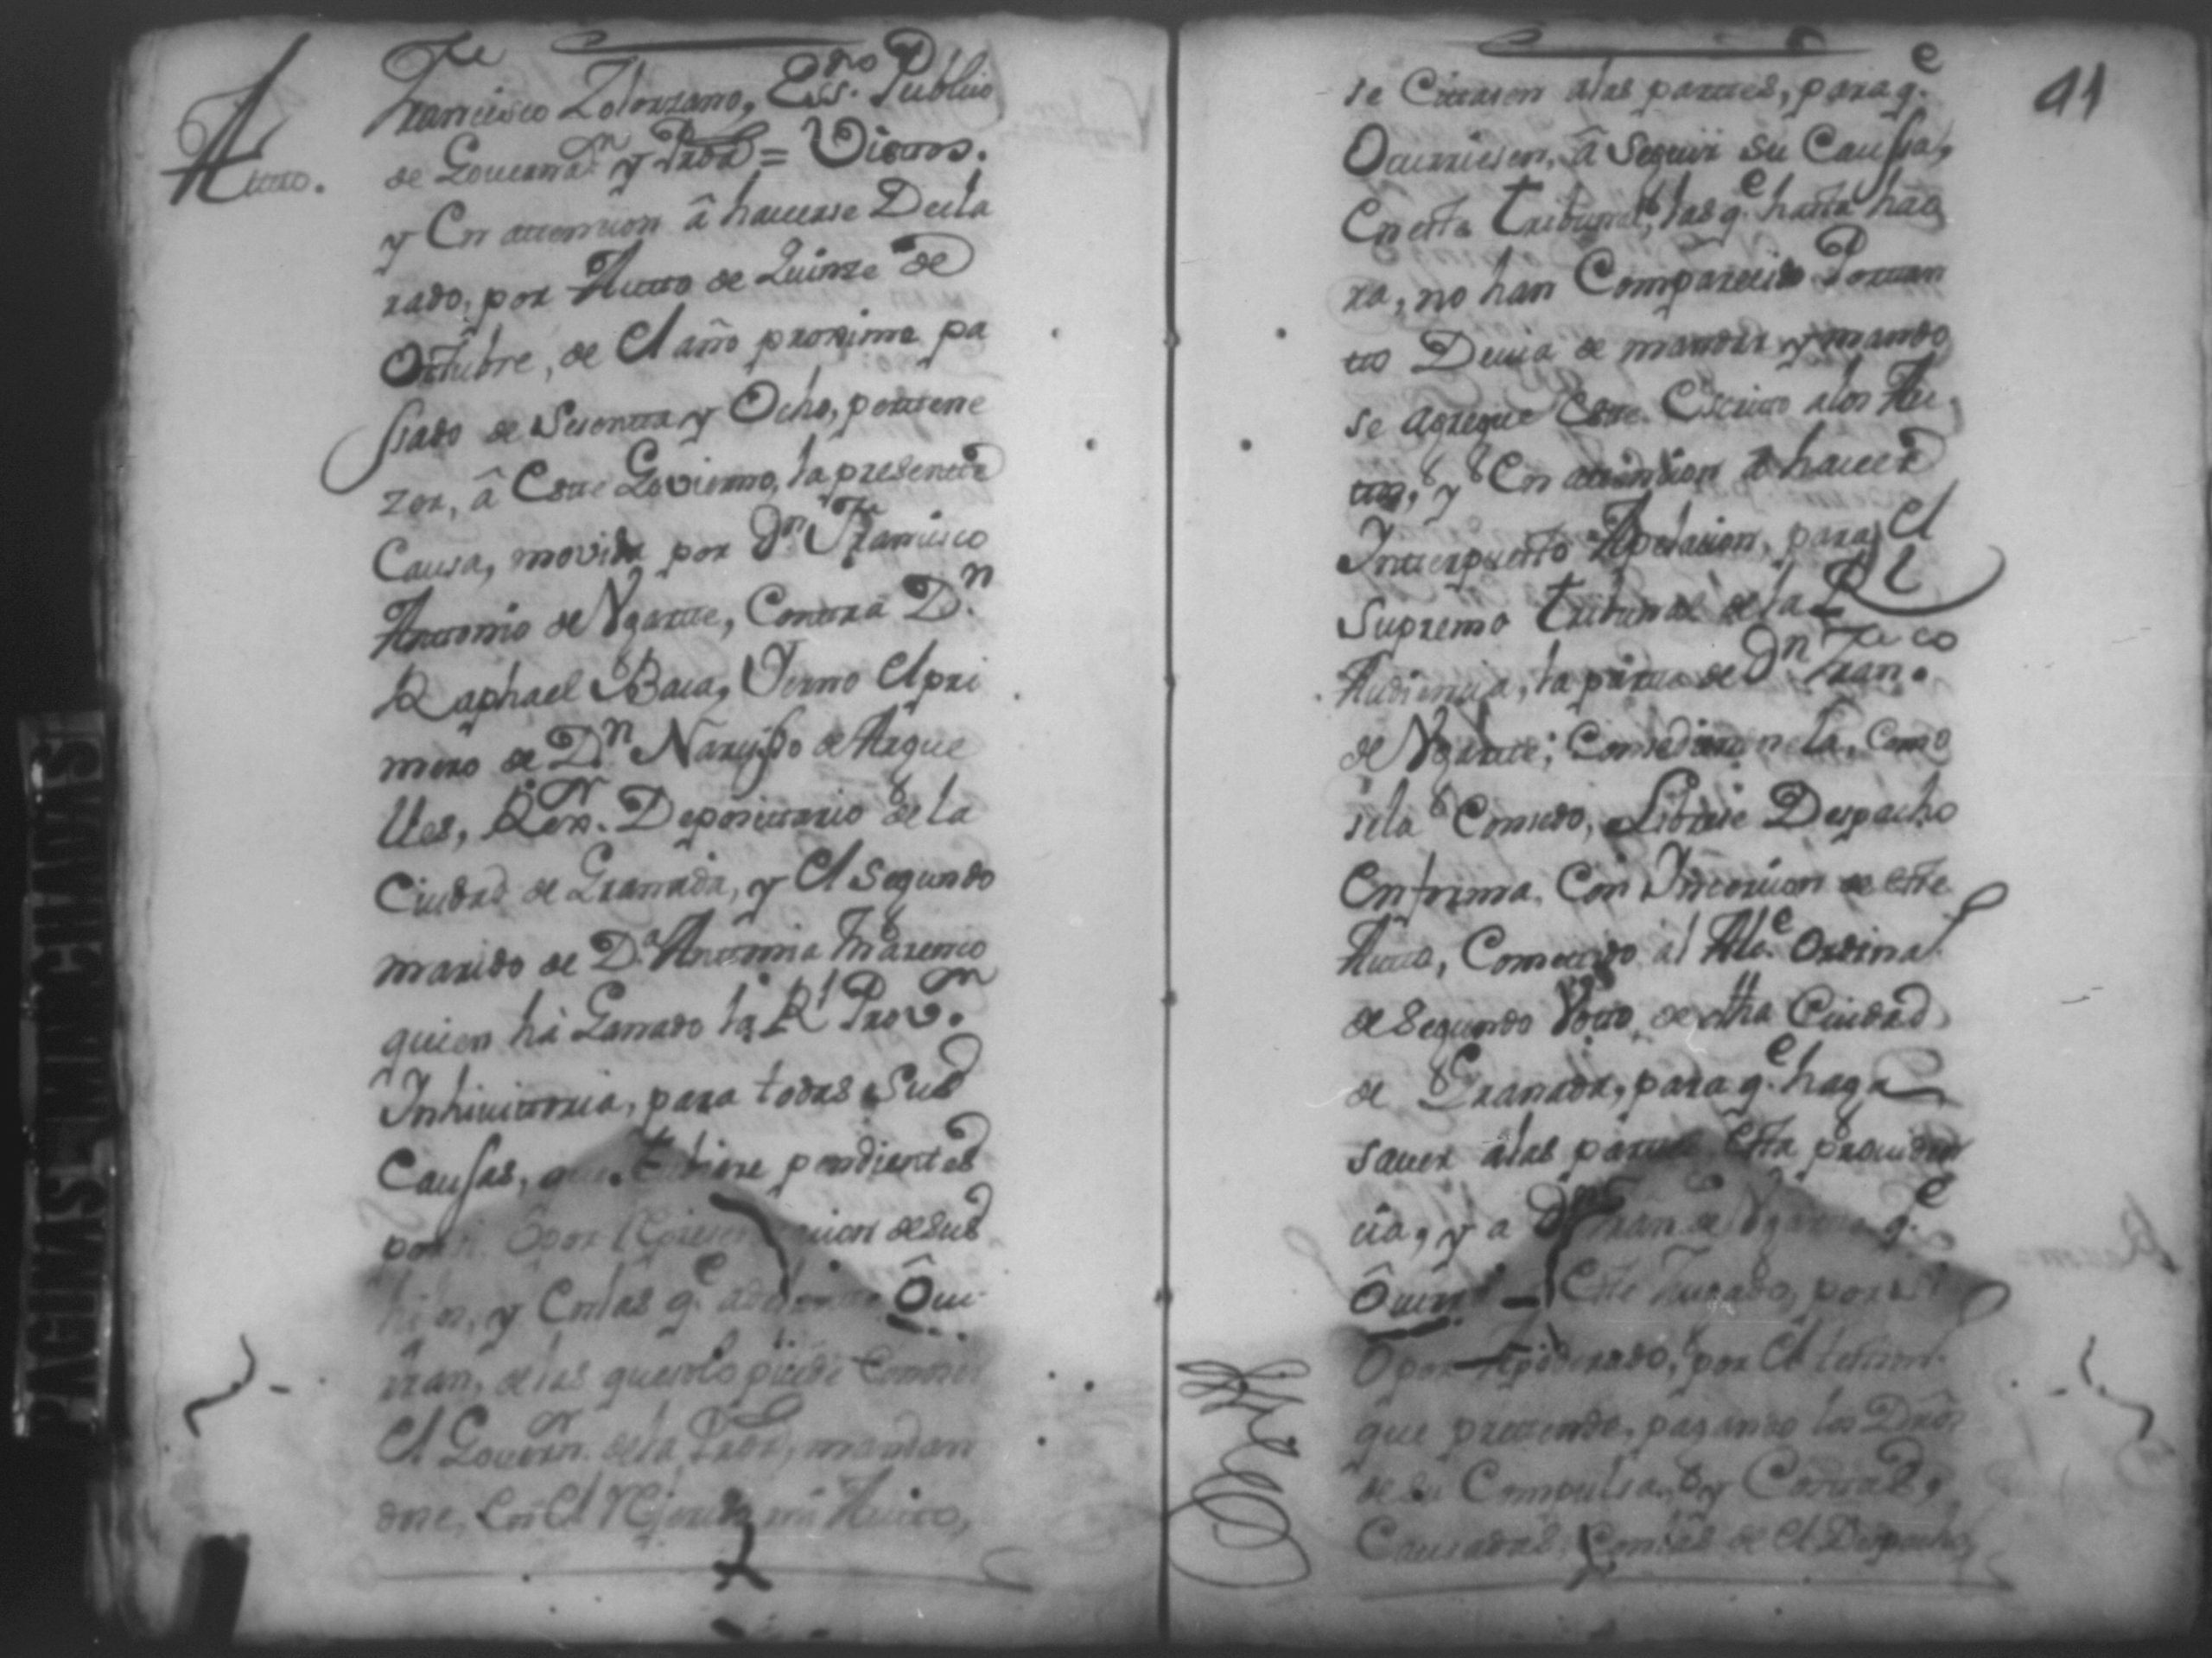 Autto.
Francisco Zolorzano, Ess.no Publico
de Governa.n y Grrā = Vistos.
y En attension â haverse Decla
rado, por Autto de Quinze de
Octubre, de El año proximo pa
ssado de Sesentta y Ocho, perttene
zer, â Este Govierno, la presentte
Causa, movida por D.n Francisco
Anttonio de Vgartte, Conttra D.n
Raphael Baca, Yerno El pri
mero de D.n Narcisso de Argue
lles, Rex.r Deposittario de la
Ciudad de Granada, y El Segundo
marido de D.a Anttonia Marenco
quien há Ganado la R.l Prov.n
Inhivittoria, para todas Sus
Causas, que tubiere pendientes
por si, Ô por Represen cion de sus
hijos, y En las q.e adelantte Ôcu
rran, de las que solo puede Conoser
El Governr. de la, mandan
dose, En El R mi Autto,
41
se Cittasen alas parttes, para q.e
Ocurriesen, â Seguir su Caussa,
En estte tribunal, las q.e hasta hao
ra, no han Comparecido Porttan
tto Devia de mandar y mando
se agregue Estte Escritto alos Au
ttos, y En attension â haver
Intterpuesto Apelacion, para El
Supremo tribunal de la R.l
Audiencia, la partte de D.n Fran.co
de Vgartte; Consediendosela, Como
sela Consedo, Librese Despacho
En forma, Con Incercion de este
Autto, Comettido al Alc.e Ordina.o
de Segundo Votto, de dha Ciudad
de Granada, para q.e haga
saver alas parttes Esta providen
cia, y a D.n Fran.co de Vgartte q.e
Ôcurra â Este Jusgado, por si
Ô por Apoderado, por El testim.o
que prettende, pagando los Dr̃os
de su Compulsa, y Costtas,
Causadas, Con las de El Despacho,
PAGINAS MANCHADAS